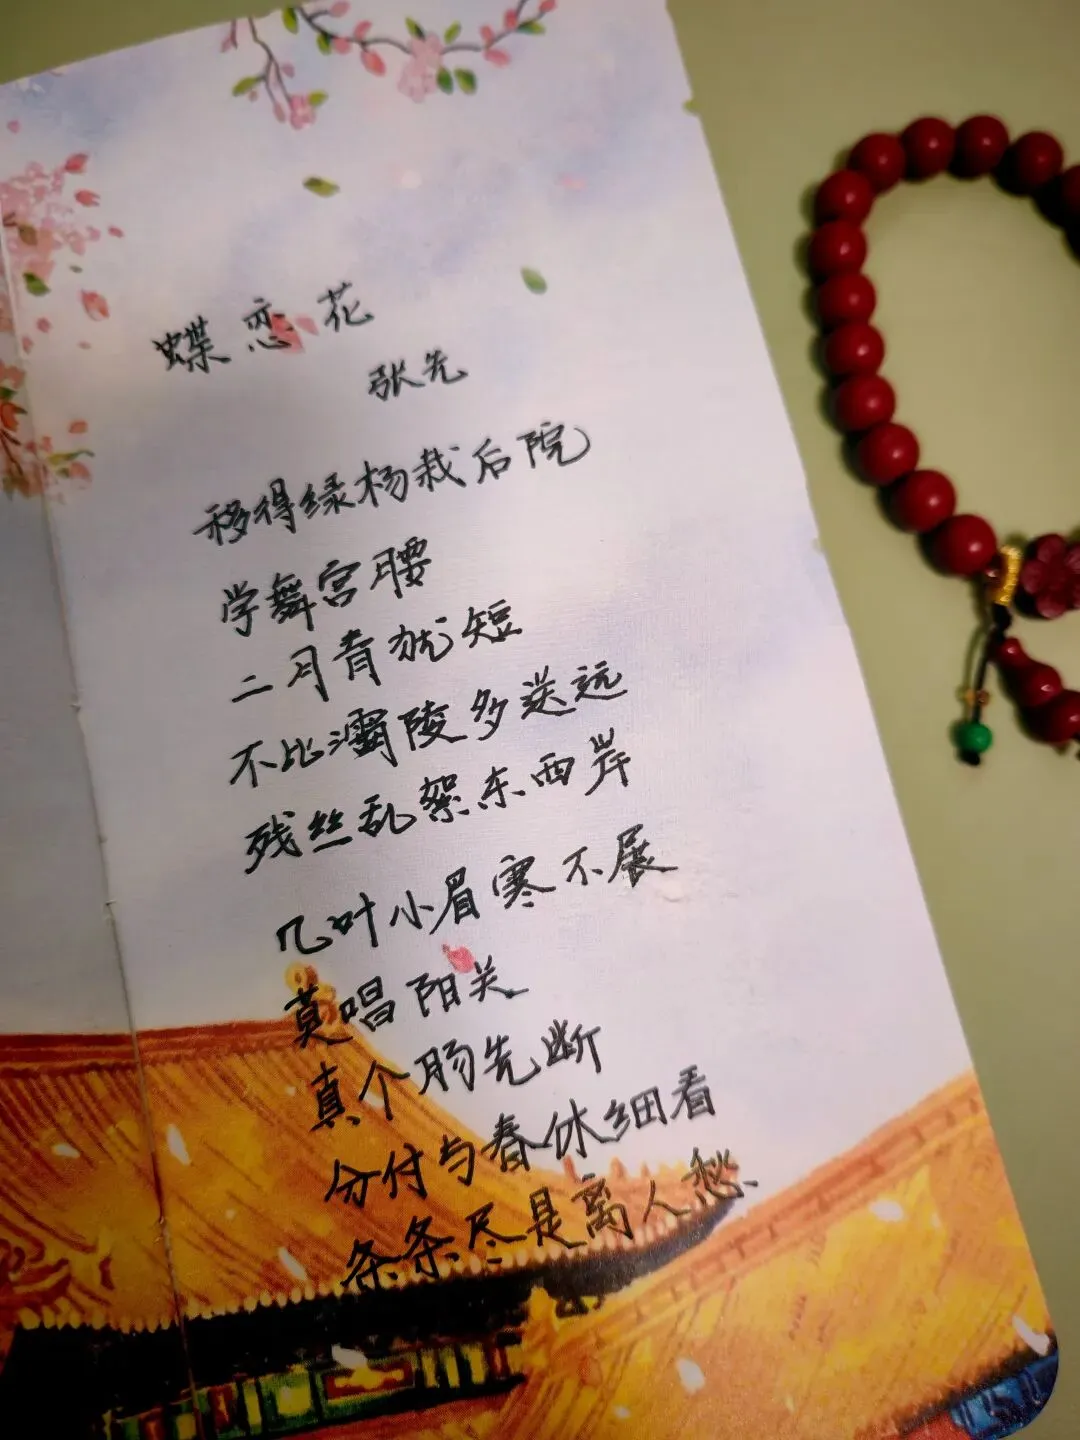 蝶恋花
张先
移得绿杨栽后院
学舞宫腰
二月青犹短
不比灞陵多送远
残丝乱絮东西岸
几叶小眉寒不展
莫唱阳关
真个肠先断
分付与春休细看
条条尽是离人愁